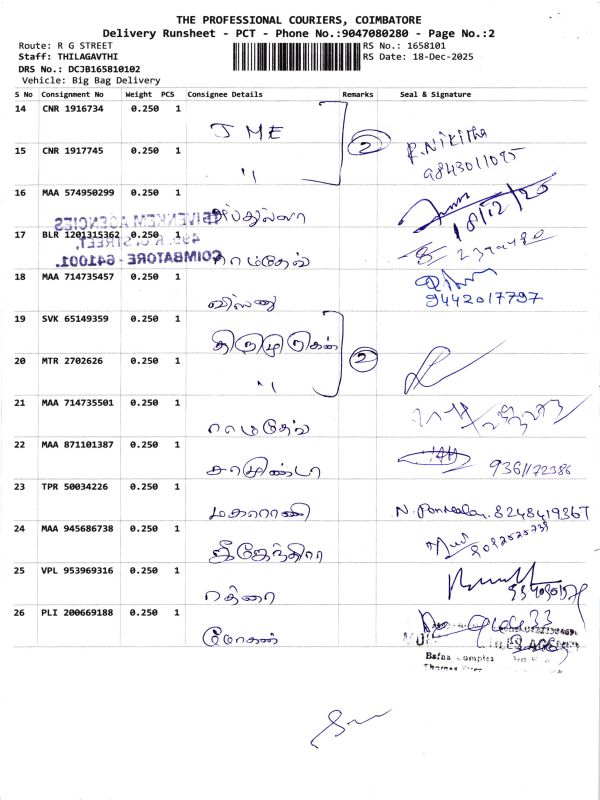 THE PROFESSIONAL COURIERS, COIMBATORE
Delivery Runsheet - PCT - Phone No.:9047080280 - Page No.:2
Route: R G STREET
RS No.: 1658101
Staff: THILAGAVTHI
RS Date: 18-Dec-2025
DRS No.: DCJB165810102
Vehicle: Big Bag Delivery
S No Consignment No Weight PCS Consignee Details Remarks Seal & Signature
14 CNR 1916734 0.250 1 J ME
2 R.Nikitha
15 CNR 1917745 0.250 1 "
9843011095
16 MAA 574950299 0.250 1 அப்துல்லா
18/12/20
SIVENKEM AGENCIES
17 BLR 1201315362 0.250 1 ராம்தேவ்
COIMBATORE - 641001.
18 MAA 714735457 0.250 1 விஸ்ணு
9442017797
19 SVK 65149359 0.250 1
2
20 MTR 2702626 0.250 1 "
21 MAA 714735501 0.250 1 ராம்தேவ்
22 MAA 871101387 0.250 1 சாமுண்டா 9361172386
23 TPR 50034226 0.250 1 மகாராணி 8248419367
24 MAA 945686738 0.250 1 ஜீஜேந்திரா
25 VPL 953969316 0.250 1 ரத்னா
26 PLI 200669188 0.250 1 மோகன்
Bafna Complex